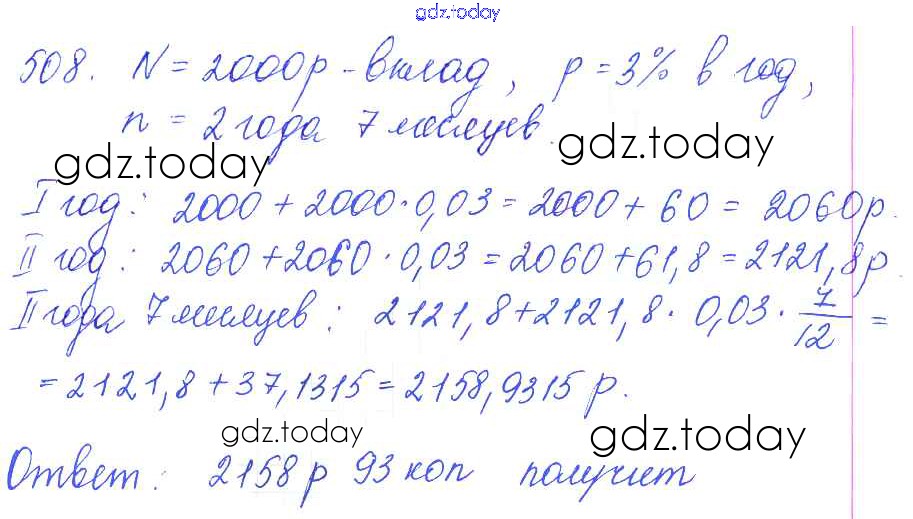 gdz.today
508. N = 2000р - вклад, p = 3% в год,
n = 2 года 7 месяцев.
gdz.today gdz.today
I год: 2000 + 2000 · 0,03 = 2000 + 60 = 2060р.
II год: 2060 + 2060 · 0,03 = 2060 + 61,8 = 2121,8р.
II года 7 месяцев: 2121,8 + 2121,8 · 0,03 · 7/12 =
= 2121,8 + 37,1315 = 2158,9315 р.
gdz.today gdz.today
Ответ: 2158 р 93 коп получит